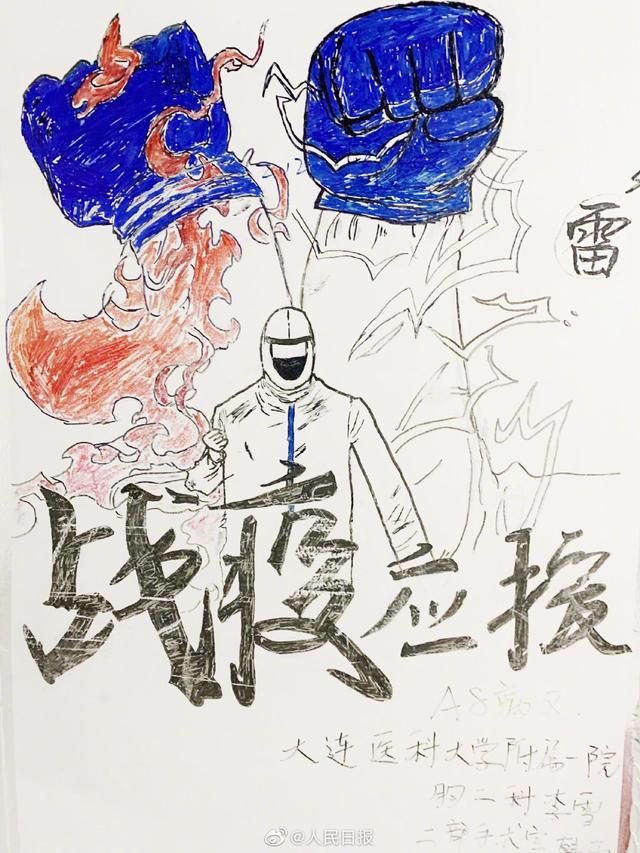 雷
战疫应援
A8病区
大连医科大学附属一院
胸二科李雪
二部手术室
@人民日报